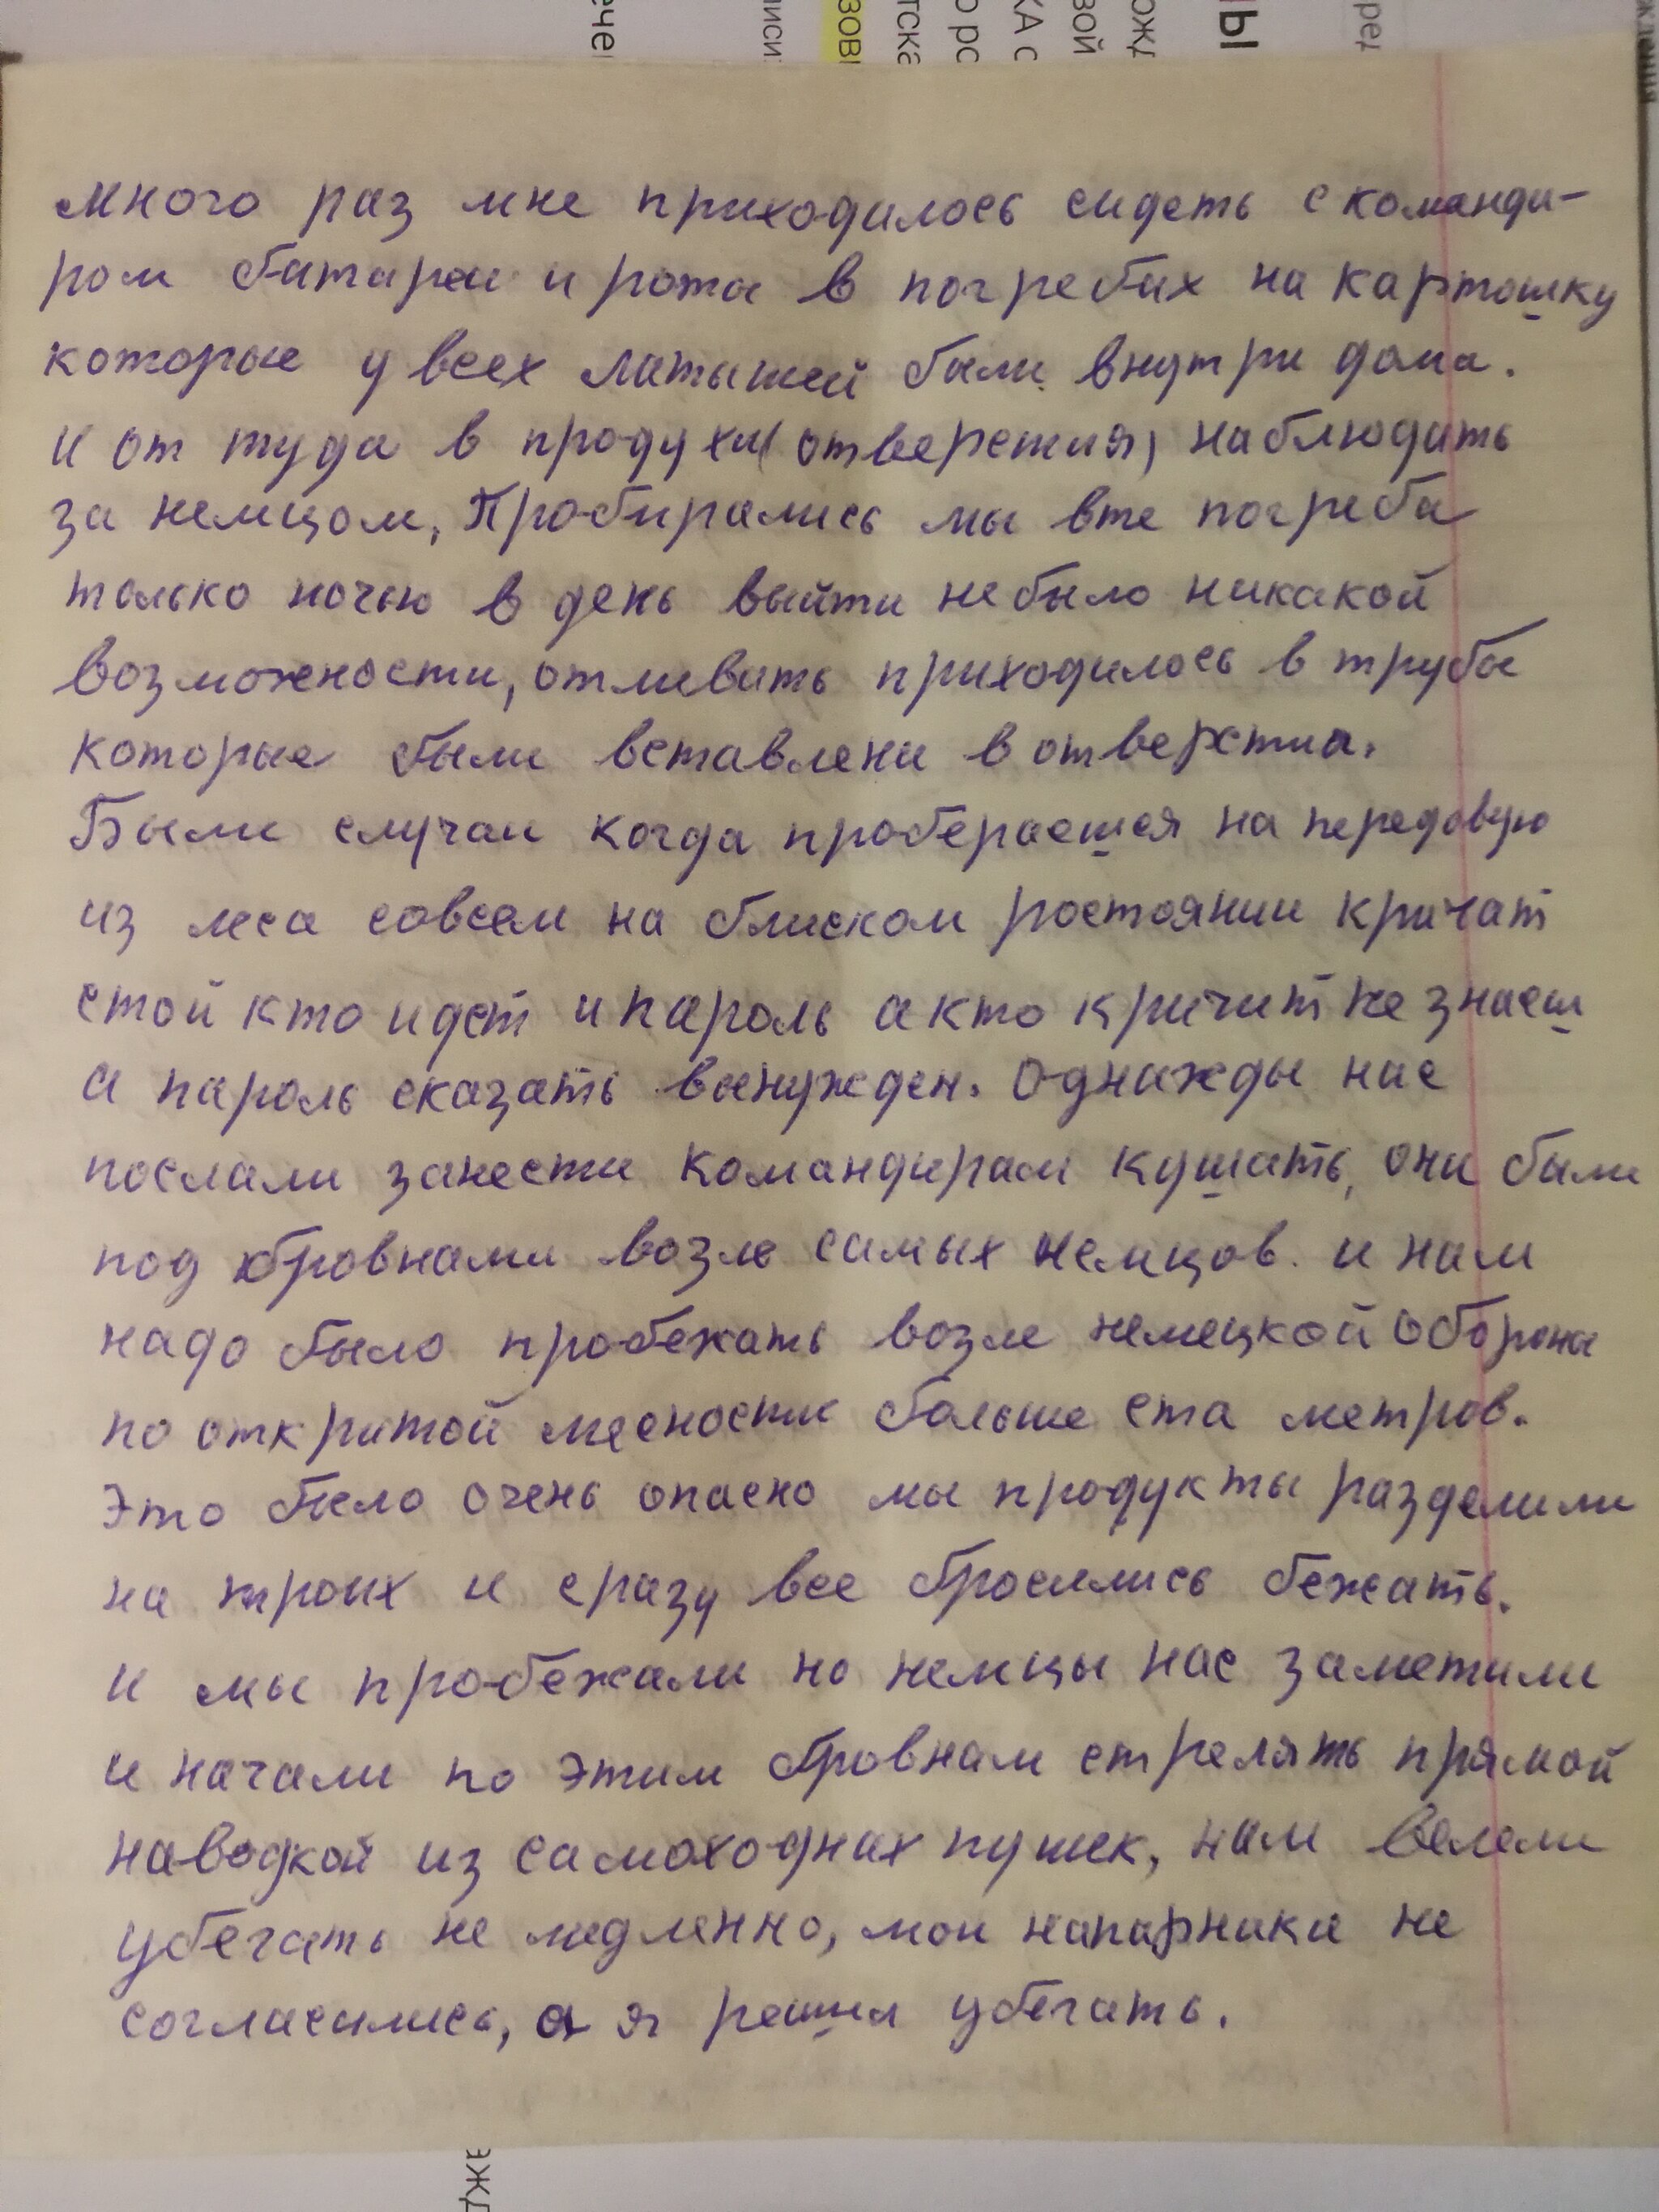 ече
лиси
зов
тска
о рс
КА с
вой
ожд
ны
ред
много раз мне приходилось сидеть с команди-
ром батареи и роты в погребах на картошку
которые у всех латышей были внутри дома.
и от туда в продухи (отверстия) наблюдать
за немцом, Пробирались мы вте погреба
только ночью в день выйти не было никакой
возможености, отливать приходилось в трубы
которые были вставлены в отверстиа.
Были случаи когда пробераешся на передовую
из леса совсем на блиском ростоянии кричат
стой кто идет и пароль а кто кричит не знаеш
а пароль сказать вынужден. Однажды нас
послали занести командирам кушать, они были
под бровнами возле самых немцов. и нам
надо было пробежать возле немецкой обороны
по открытой месности больше ста метров.
Это было очень опасно мы продукты разделили
на троих и сразу все бросились бежать.
и мы пробежали но немцы нас заметили
и начали по этим бровнам стрелять прямой
наводкой из самоходных пушек, нам велели
убегать не медленно, мои напарники не
согласились, а я решил убегать.
дже